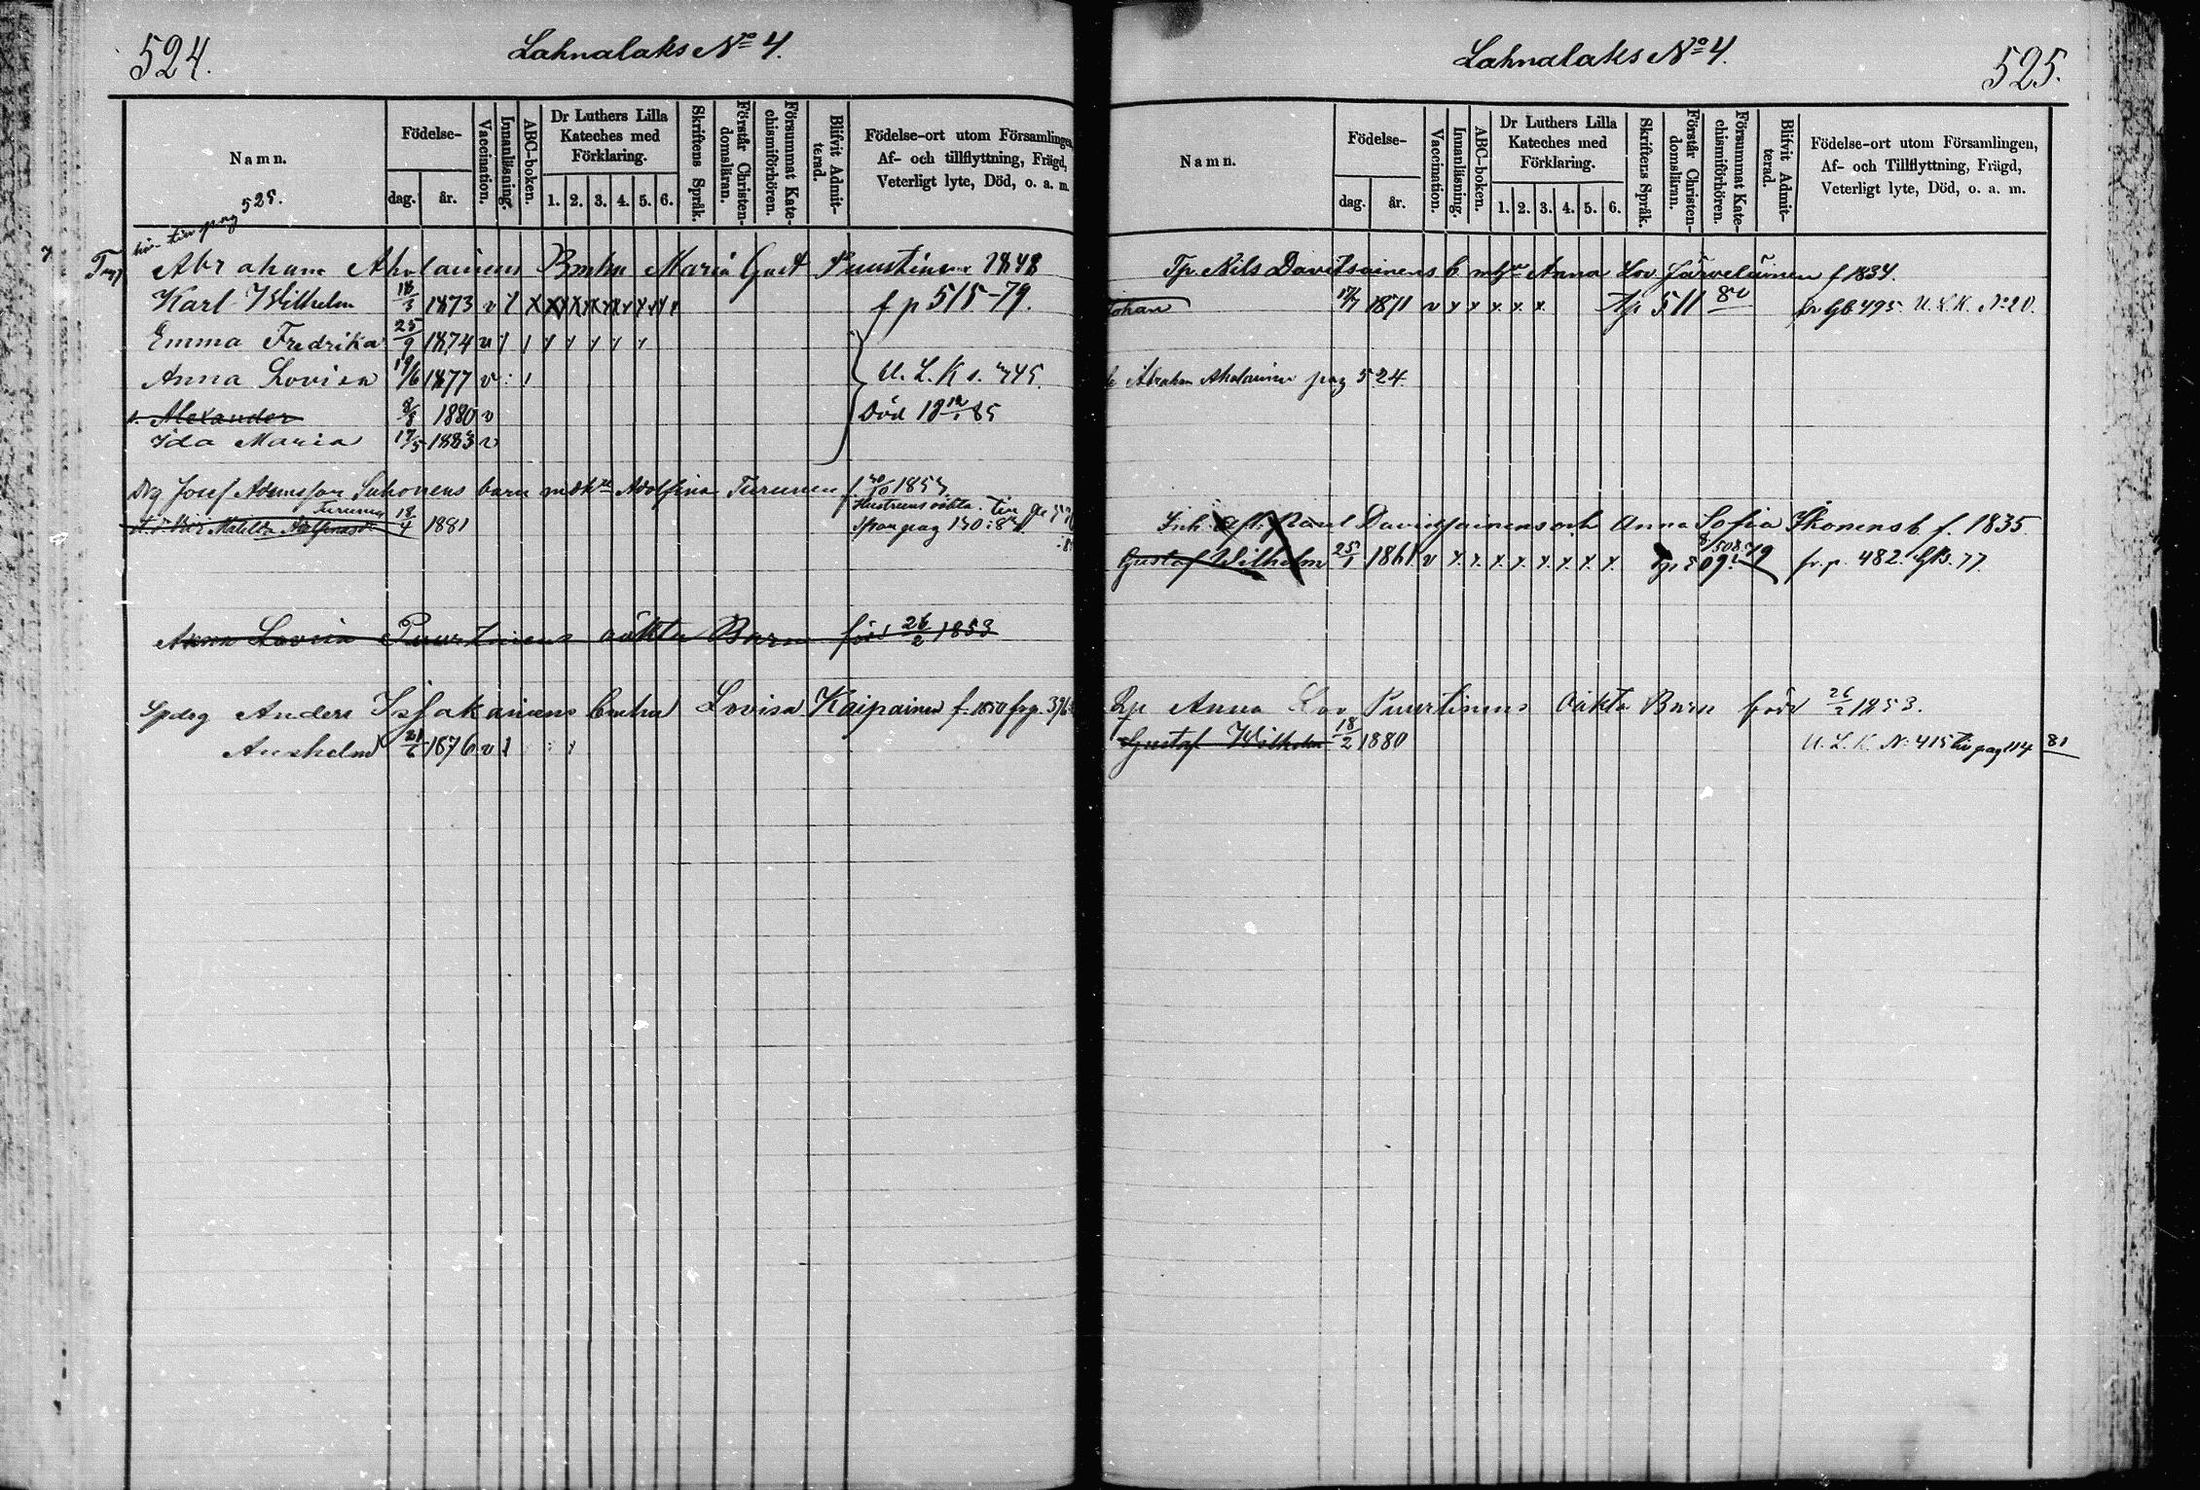 524.
Lahnalaks No 4.
Namn.
Födelse-
dag.
år.
Vaccination.
Innanläsning.
ABC-boken.
Dr Luthers Lilla
Kateches med
Förklaring.
1. 2. 3. 4. 5. 6.
Skriftens Språk.
Förstår Christen-
domsläran.
Försummat Kate-
chismiförhören.
Blifvit Admit-
terad.
Födelse-ort utom Församlingen,
Af- och tillflyttning, Frägd,
Veterligt lyte, Död, o. a. m.
pag 525.
Abraham Aholainens Maria Gust Puustinen 1848
Karl Wilhelm 18/3 1873 v f p 515-79.
Emma Fredrika 25/9 1874 v
Anna Lovisa 19/6 1877 v U. L. K s. 745.
Alexander 8/8 1880 v Död 18 12/1 85
Ida Maria 17/5 1883 v
Drg Josef Adamsson Suhonens barn Adolfina Turunen f. 1853
Turunen
Matilda 18/4 1881 pag 130
Anna Lovisa Puurtinens oäkta Barn född 26/2 1853
Anders Isjakainens Lovisa Kaipainen f. 1850
Anshelm 21/6 1876 v
Lahnalaks No 4.
525.
Namn.
Födelse-
dag.
år.
Vaccination.
Innanläsning.
ABC-boken.
Dr Luthers Lilla
Kateches med
Förklaring.
1. 2. 3. 4. 5. 6.
Skriftens Språk.
Förstår Christen-
domsläran.
Försummat Kate-
chismiförhören.
Blifvit Admit-
terad.
Födelse-ort utom Församlingen,
Af- och Tillflyttning, Frägd,
Veterligt lyte, Död, o. a. m.
Tp. Nils Davidsainens b Anna Lov Järveläinen f 1834.
Johan 1871 v x x x x x 511 80 495 U. L. K. No 20.
Abraham Aholainen pag 524.
Paul Davidsainens och Anna Sofia Ikonens b. f. 1835
508
Gustaf Wilhelm 25/1 1861 v x x x x x x x x x 509 79 fr. p. 482. 77.
Anna Lov Puurtinens Oäkta Barn född 26/2 1853.
Gustaf Wilhelm 18/2 1880 U. L. K. No 415 pag 114 81